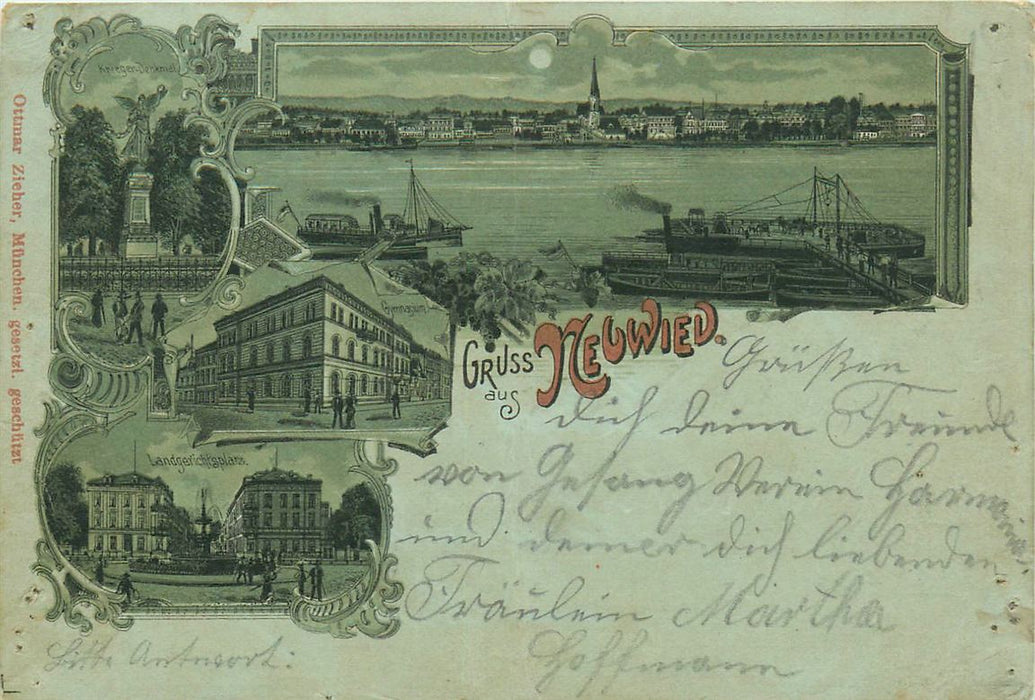 Ottmar Zieher, München, gesetzl. geschützt
Krieger-Denkmal
Gymnasium
Landgerichtsplatz.
Gruss
aus
Neuwied.
Grüßen
dich deine Freunde
von Gesang Verein
und deiner dich liebenden
Fräulein Martha
Hoffmann
Bitte Antwort: